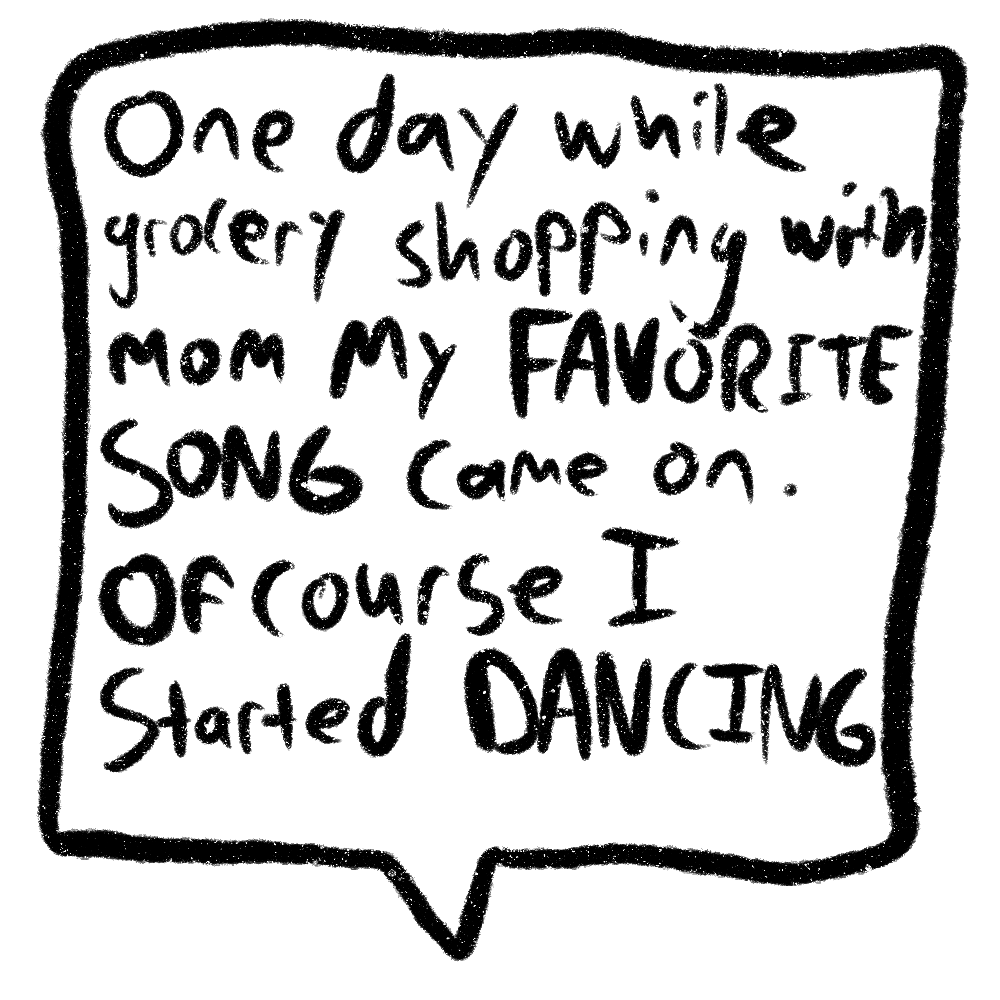 One day while
grocery shopping with
mom my FAVORITE
SONG came on.
OFcourse I
Started DANCING